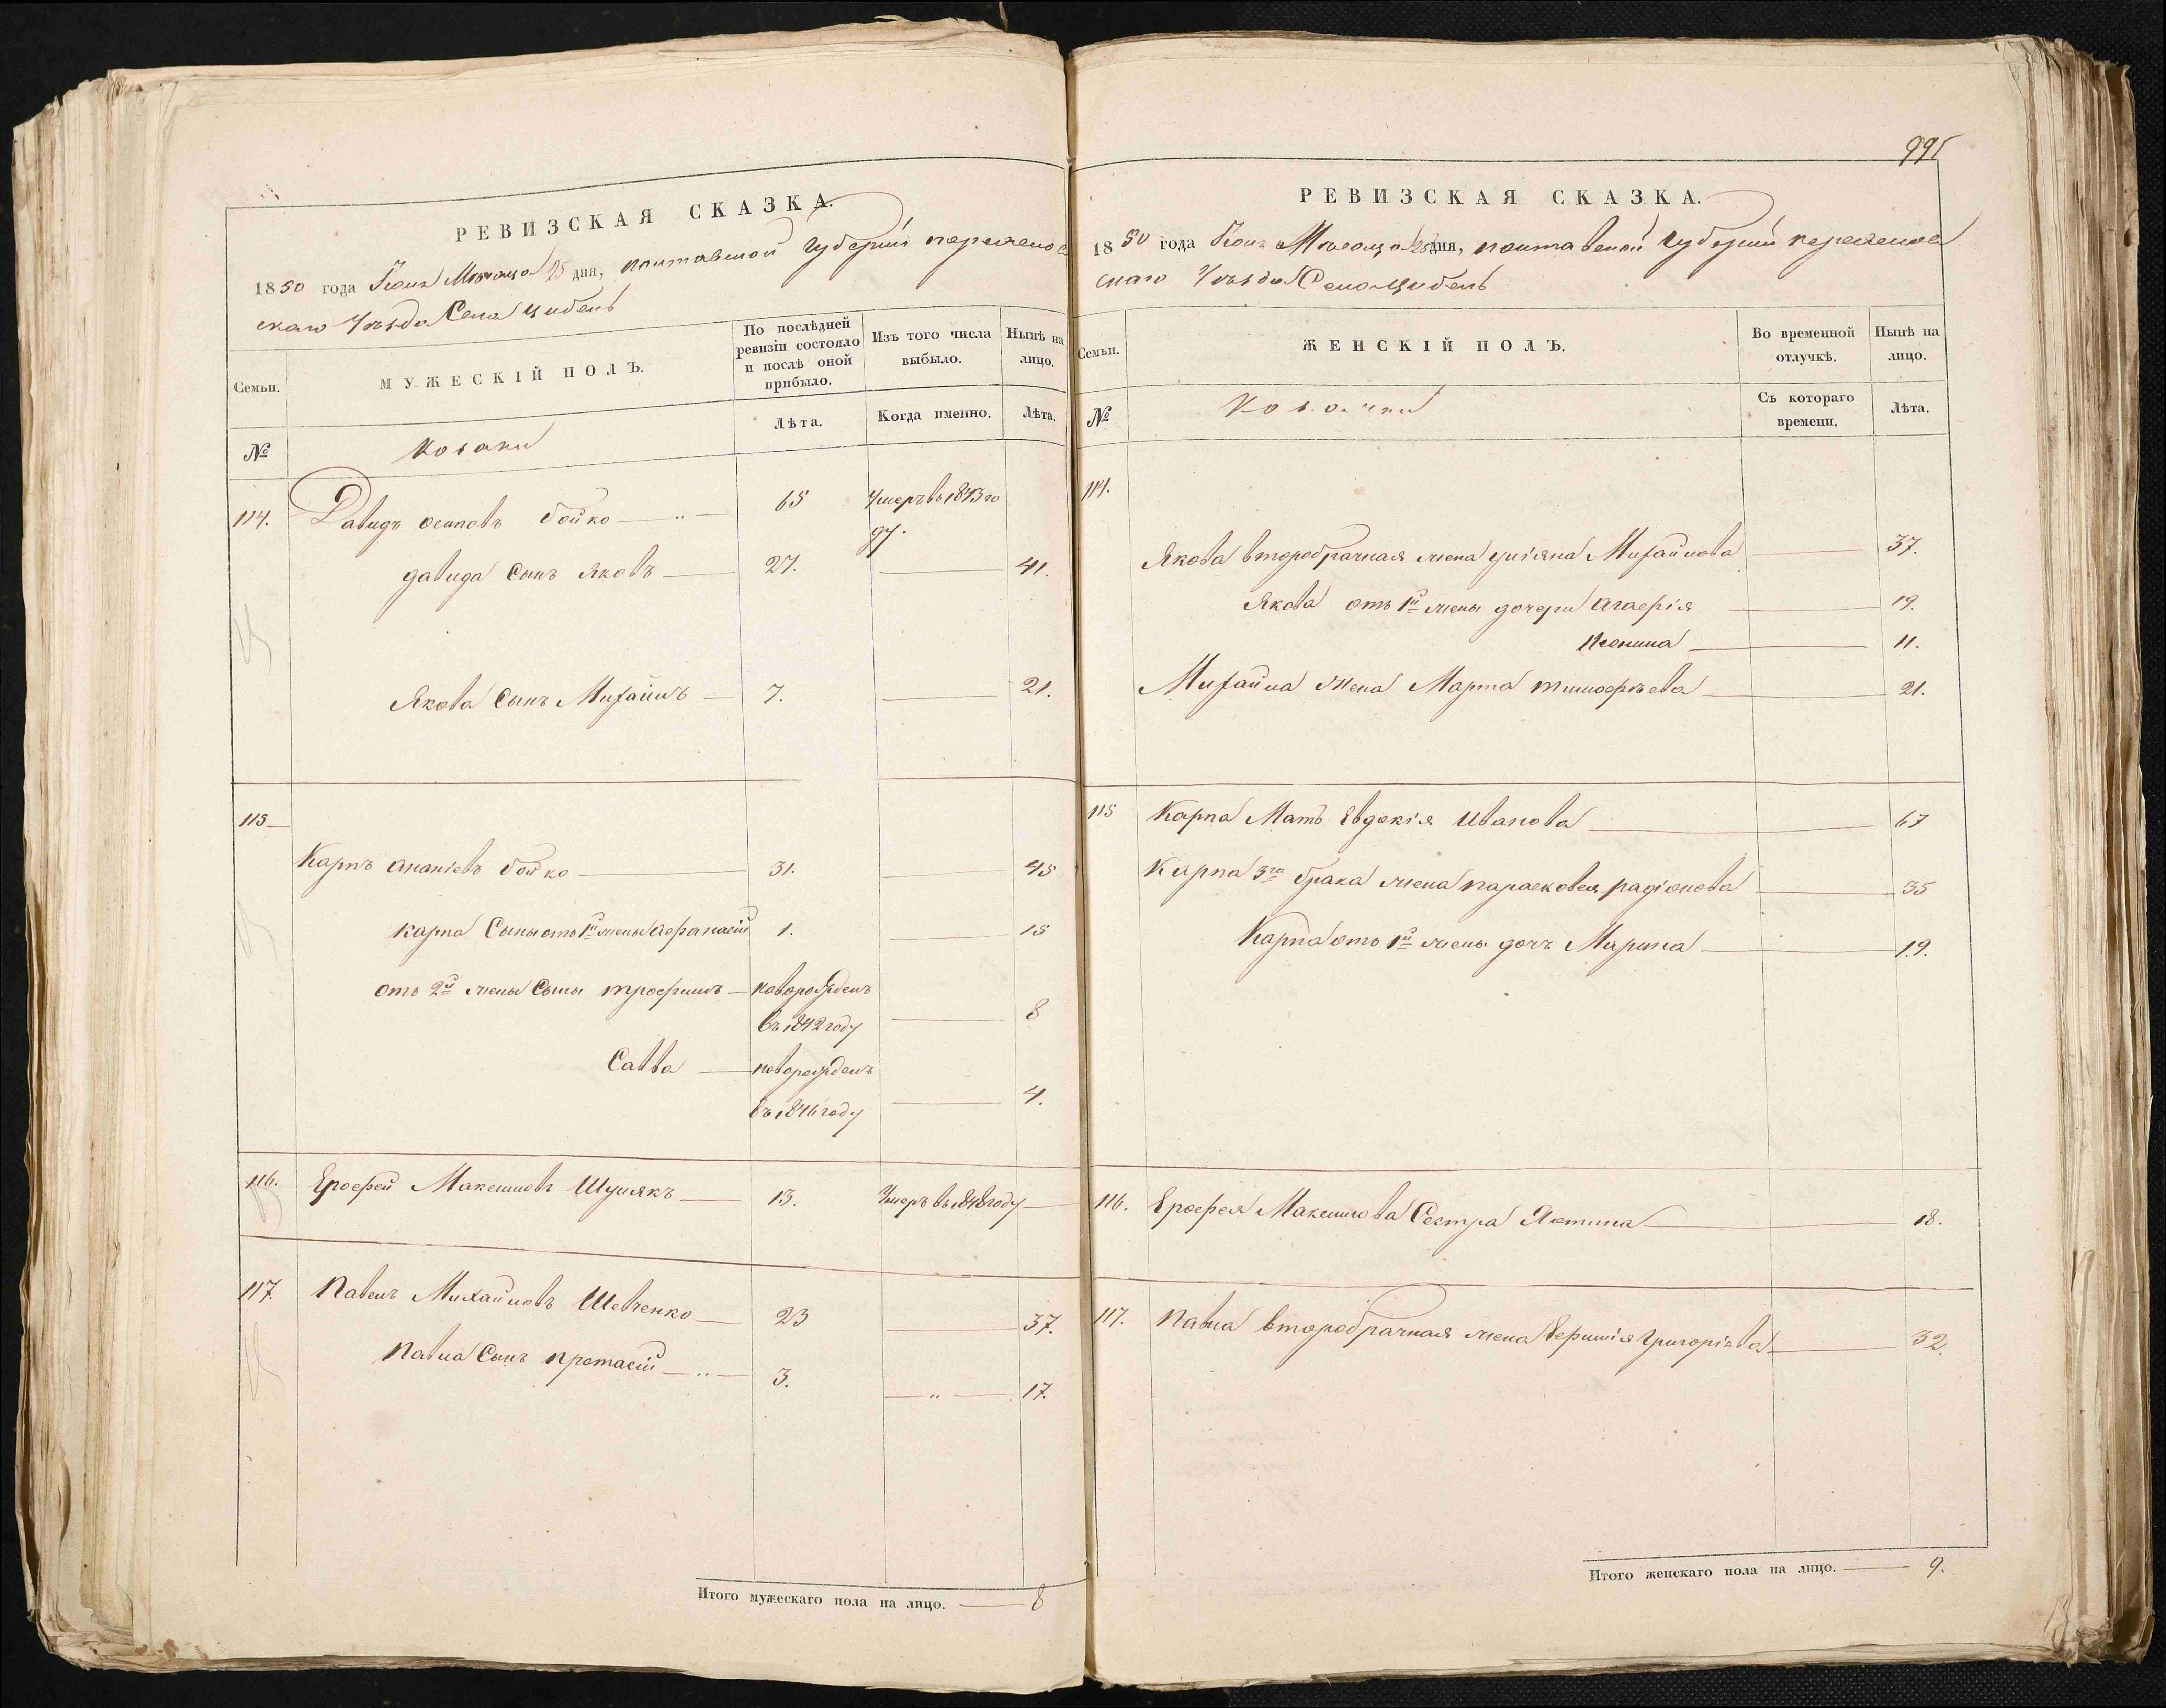 РЕВИЗСКАЯ СКАЗКА.
1850 года Юня Мѣсяца 25 дня, полтавской Губерніи переяслов
скаго Уѣзда Села Цибель
Семьи.
МУЖЕСКІЙ ПОЛЪ.
По послѣдней ревизіи состояло и послѣ оной прибыло.
Изъ того числа выбыло.
Нынѣ на лицо.
№
козаки
Лѣта.
Когда именно.
Лѣта.
114. Давидъ осиповъ бойко — „ — 65 Умеръ въ 1843 го
ду.
давида Сынъ Яковъ — 27. — 41.
Якова Сынъ Михайилъ — 7. — 21.
115
Карпъ ананіевъ бойко — 31. — 45
карпа Сыны отъ 1й жены Афанасій 1. — 15
отъ 2й жены Сыны трофимъ — новорожденъ
въ 1842 году — 8
Савва — новорожденъ
въ 1846 году — 4.
116. Ерофей Максимовъ Шулякъ — 13. Умеръ въ 1848 году —
117. Павелъ Михайловъ Шевченко — 23 — 37.
Павла Сынъ протасій — „ — 3. — „ — 17.
Итого мужескаго пола на лицо. — 8
991
РЕВИЗСКАЯ СКАЗКА.
1850 года Юня Мѣсяца 25 дня, полтавской Губерніи переяслов
скаго Уѣзда Села Цибель
Семьи.
ЖЕНСКІЙ ПОЛЪ.
Во временной отлучкѣ.
Нынѣ на лицо.
№
козачки
Съ котораго времени.
Лѣта.
114.
Якова второбрачная жена уліяна Михайлова — 37.
Якова отъ 1й жены дочери Агафія — 19.
Ксенина — 11.
Михайла Жена Марта тимофѣева — 21.
115 Карпа Мать Евдокія Иванова — 67
Карпа 3го брака жена парасковея радіонова — 35
Карпа отъ 1й жены дочь Марина — 19.
116. Ерофея Максимова Сестра Устина — 18.
117. Павла второбрачная жена Ефимія Григоріева — 32.
Итого женскаго пола на лицо. — 9.